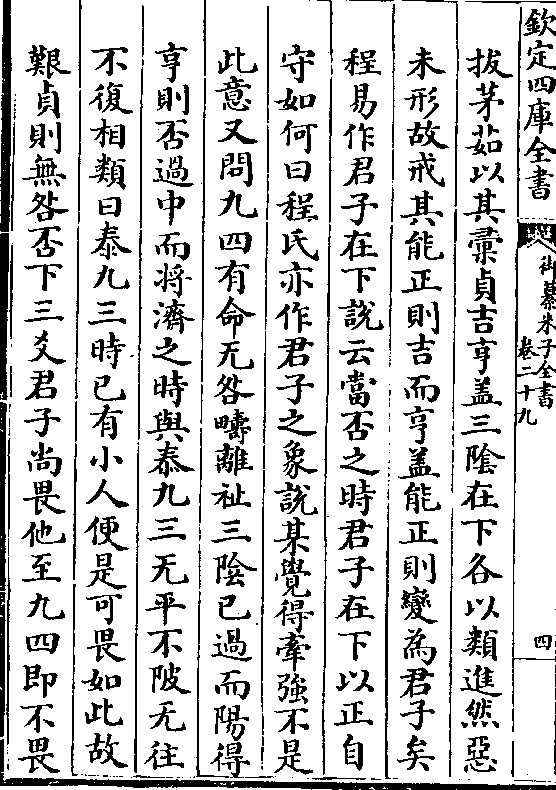 欽定四庫全書
御纂朱子全書
卷二十九
四
拔茅茹以其彚貞吉亨盖三隂在下各以類進然惡
未形故戒其能正則吉而亨盖能正則變為君子矣
程易作君子在下說云當否之時君子在下以正自
守如何曰程氏亦作君子之象說某覺得牽強不是
此意又問九四有命无咎疇離祉三隂已過而陽得
亨則否過中而将濟之時與泰九三无平不陂无往
不復相類曰泰九三時已有小人便是可畏如此故
艱貞則無咎否下三爻君子尚畏他至九四即不畏